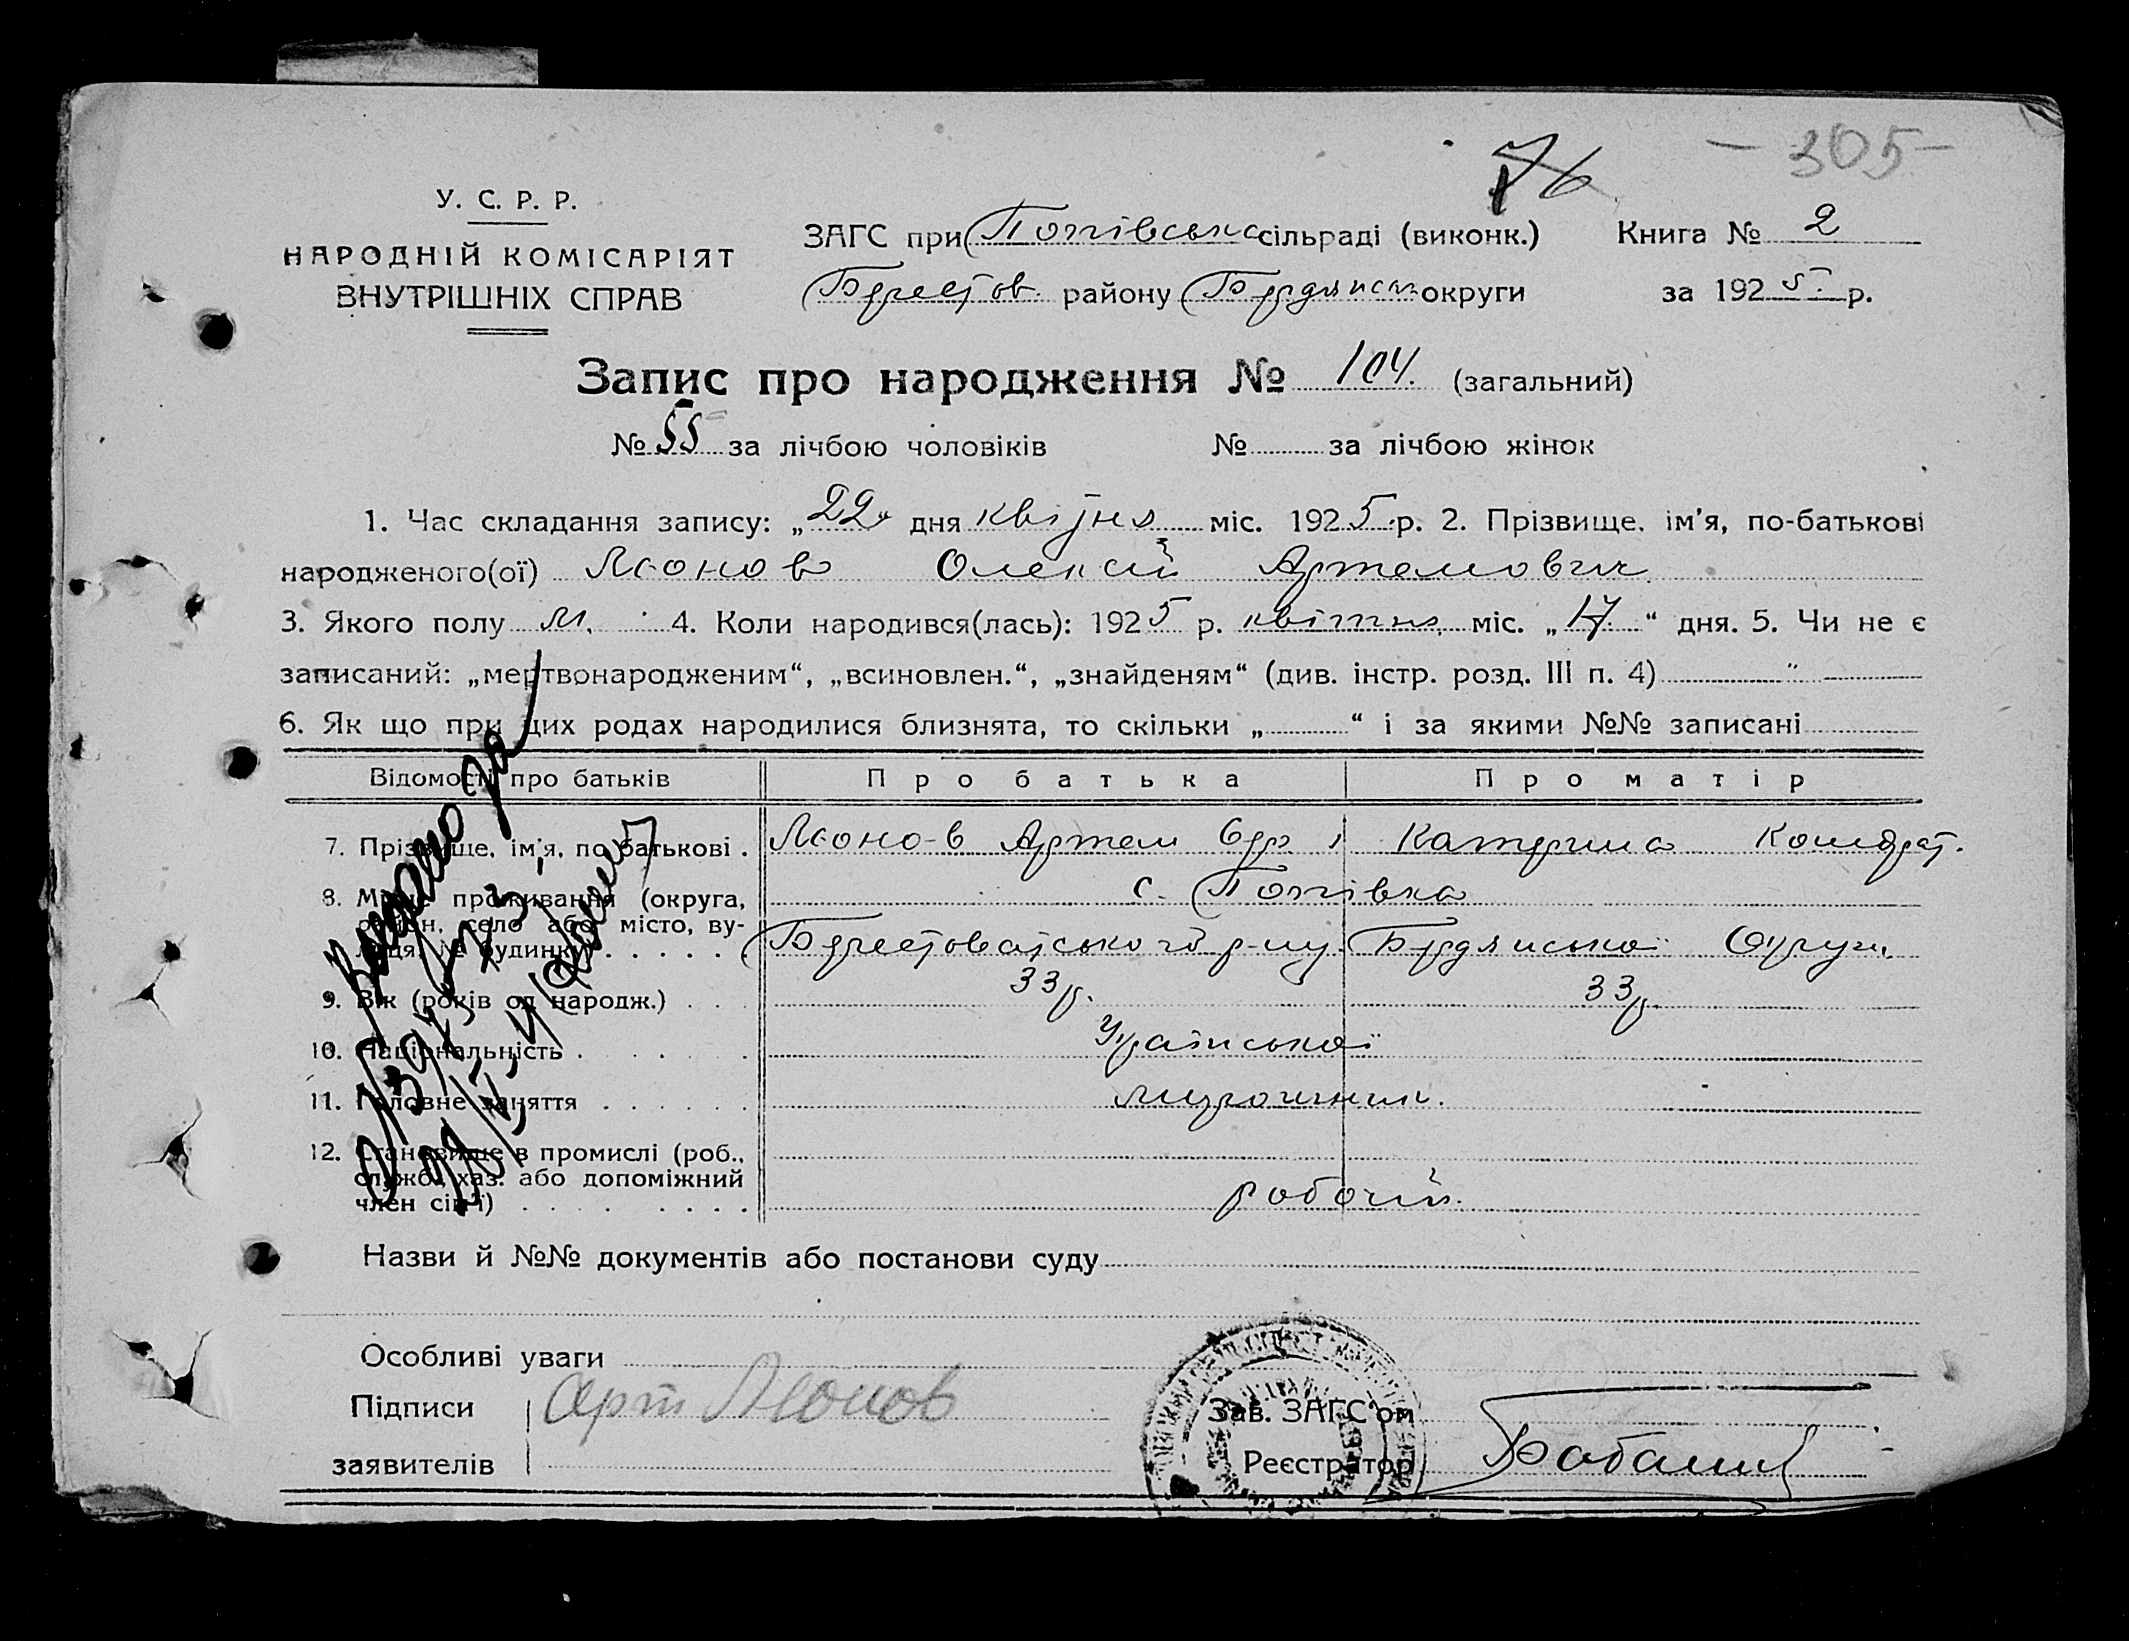 76
- 305 -
У. С. Р. Р.
НАРОДНІЙ КОМІСАРІЯТ
ВНУТРІШНІХ СПРАВ
ЗАГС при Попівська сільраді (виконк.) Книга № 2
Берестов. району Бердянськ округи за 1925 р.
Запис про народження № 104. (загальний)
№ 55 за лічбою чоловіків № за лічбою жінок
1. Час складання запису: „22“ дня квітня міс. 1925 р. 2. Прізвище, ім'я, по-батькові
народженого(ої) Леонов Олексій Артемович
3. Якого полу м. 4. Коли народився(лась): 1925 р. квітня міс. „17“ дня. 5. Чи не є
записаний: „мертвонародженим“, „всиновлен.“, „знайденям“ (див. інстр. розд. III п. 4) "
6. Як що при цих родах народилися близнята, то скільки „ “ і за якими №№ записані
Відомості про батьків Про батька Про матір
7. Прізвище, ім'я, по батькові . Леонов Артем Катерина Кондрат.
8. Місце проживання (округа, с. Попівка
район, село або місто, ву-
лиця, № будинку) . . . . . Берестоватського р-ну Бердянської Округи
9. Вік (років од народж.) . . . 33 р. 33 р.
10. Національність . . . . . Української
11. Головне заняття . . . . . .
12. Становище в промислі (роб.,
службі, хаз. або допоміжний
член сім'ї) . . . . . . . . робочий.
Назви й №№ документів або постанови суду
Особливі уваги
Підписи Арт Леонов Зав. ЗАГС'ом
заявителів Реєстратор